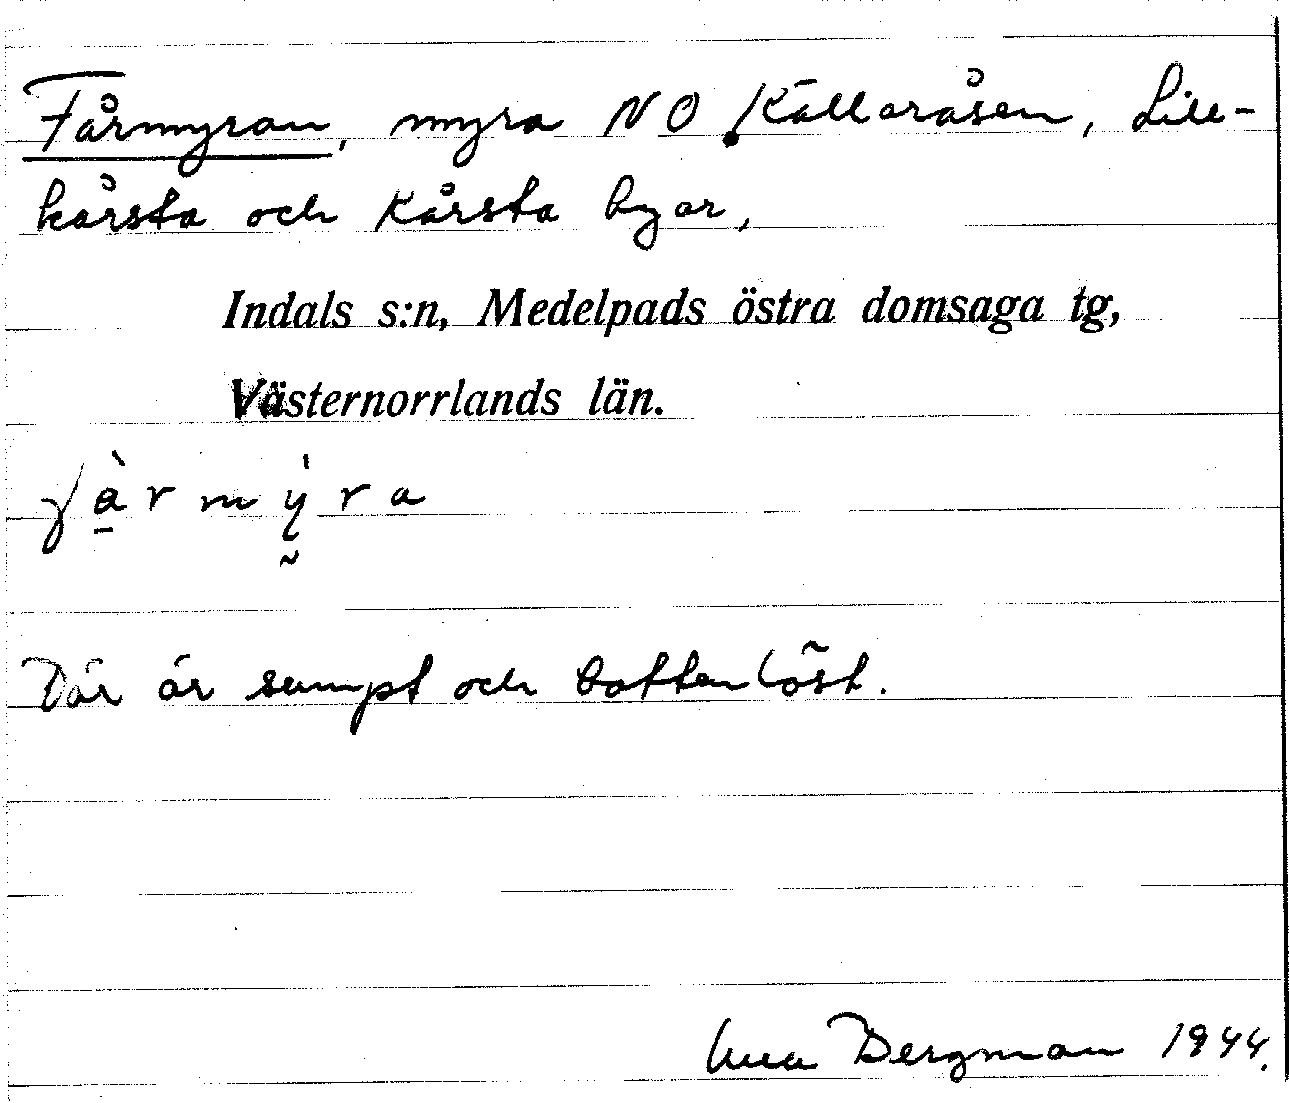 Fårmyran, myra NO Källaråsen, Lill-
kårsta och Kårsta byar,
Indals s:n, Medelpads östra domsaga tg,
Västernorrlands län.
Där är sumpt och bottenlöst.
Bergman 1944.